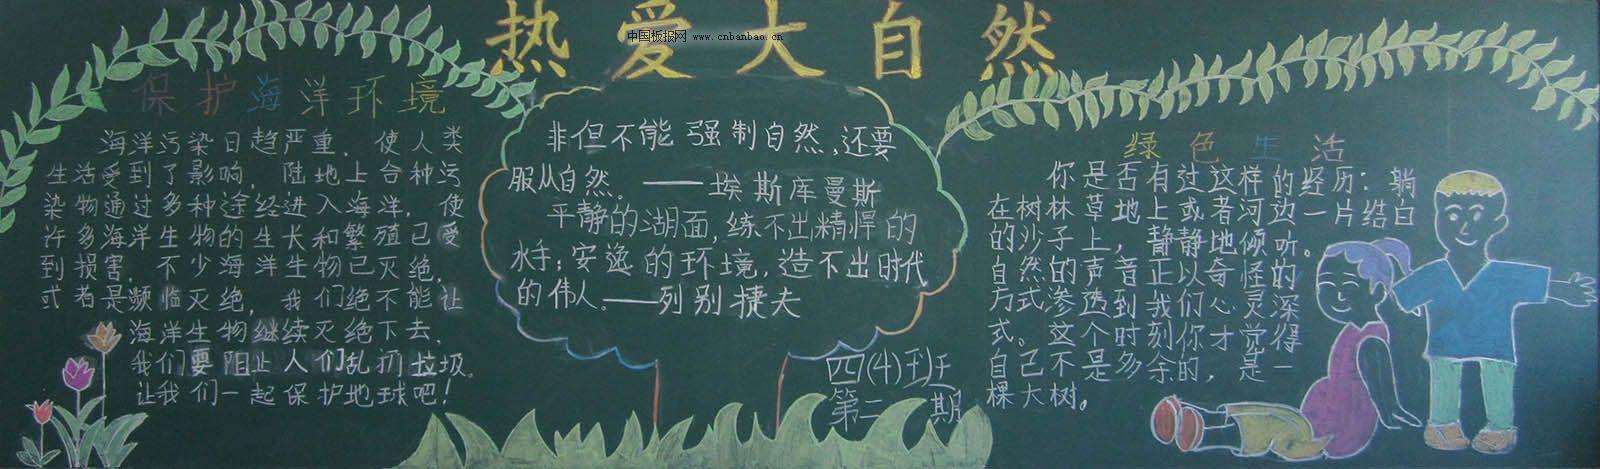 热爱大自然
中国板报网 www.cnbanbao.cn
保护海洋环境
海洋污染日趋严重，使人类
生活受到了影响，陆地上合种污
染物通过多种途经进入海洋，使
许多海洋生物的生长和繁殖已受
到损害，不少海洋生物已灭绝，
或者是濒临灭绝，我们绝不能让
海洋生物继续灭绝下去，
我们要阻止人们乱扔垃圾。
让我们一起保护地球吧！
非但不能强制自然，还要
服从自然。——埃斯库曼斯
平静的湖面，练不出精悍的
水手；安逸的环境，造不出时代
的伟人。——列别捷夫
四(4)班
第二期
绿色生活
你是否有过这样的经历：躺
在树林草地上或者河边一片结白
的沙子上，静静地倾听。
自然的声音正以奇怪的
方式渗透到我们心灵深
式。这个时刻你才觉得
自己不是多余的，是一
棵大树。